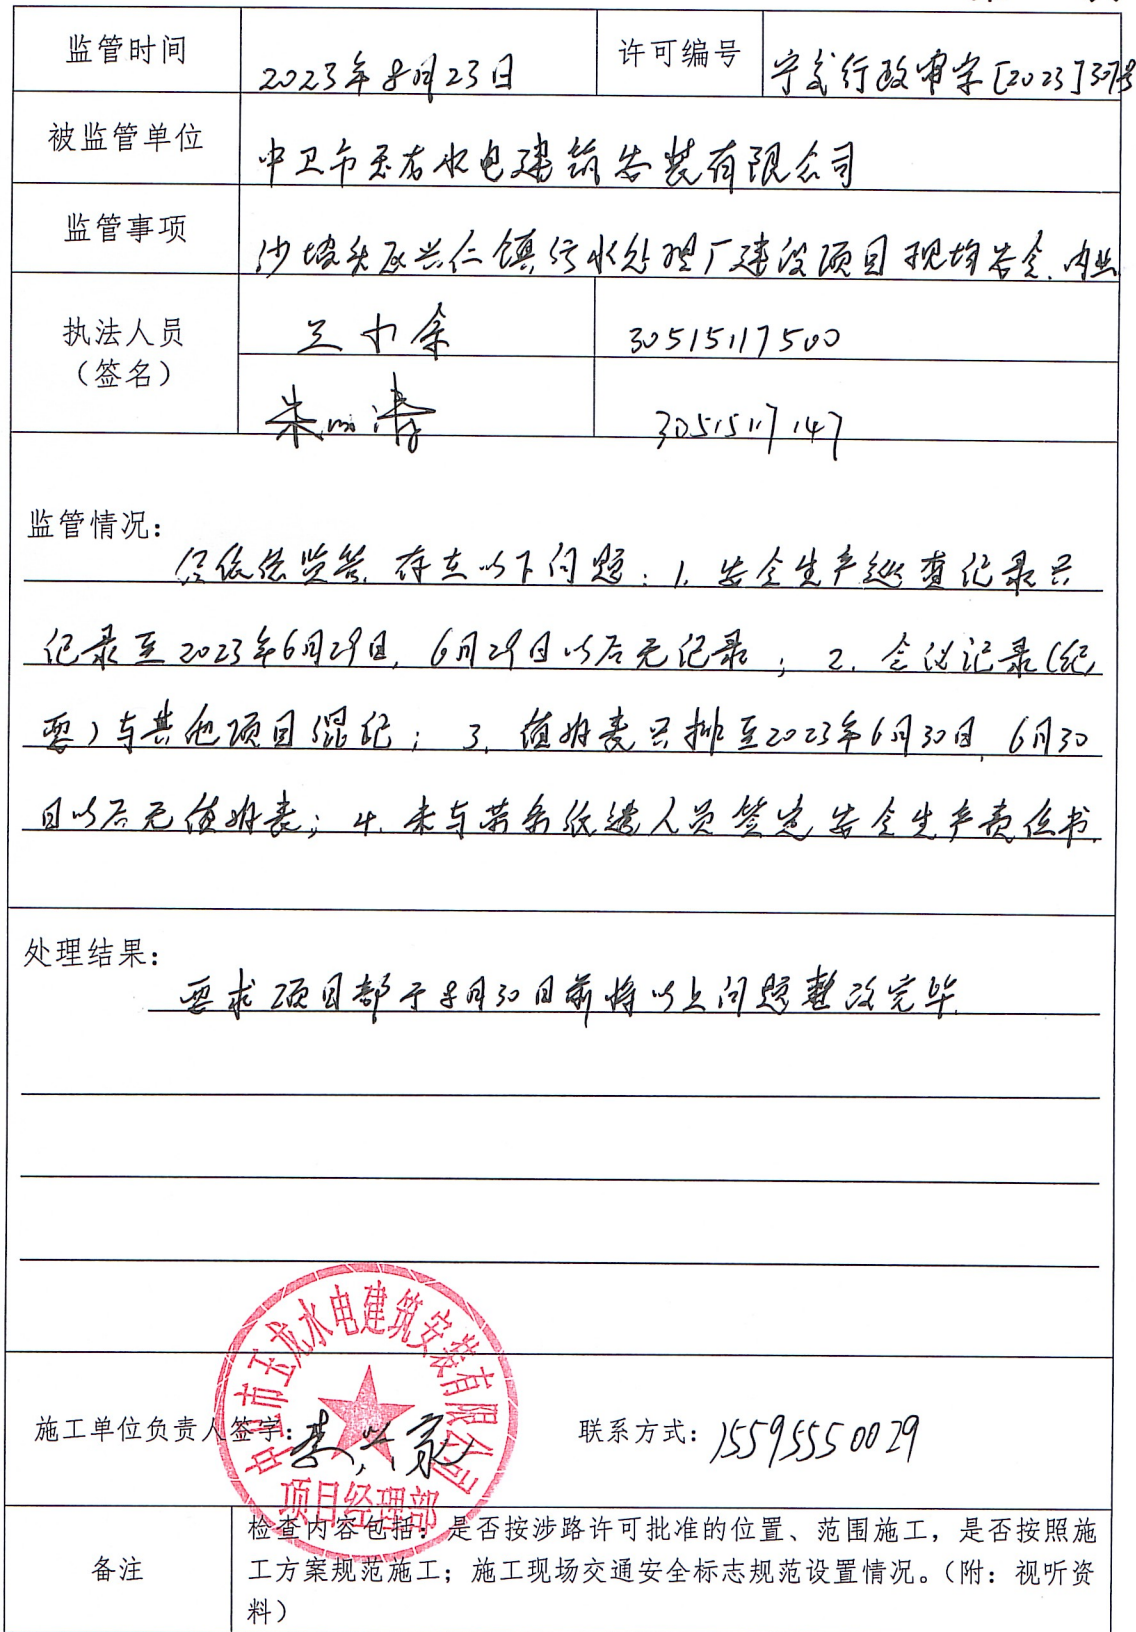 监管时间 2023年8月23日 许可编号 宁交行政审字[2023]307号
被监管单位 中卫市玉龙水电建筑安装有限公司
监管事项 沙坡头区兴仁镇污水处理厂建设项目现场安全、内业
执法人员
(签名)
30515117500
30515117147
监管情况:
经依法监管,存在以下问题:1、安全生产巡查记录只
记录至2023年6月29日,6月29日以后无记录;2、会议记录(纪
要)与其他项目混记;3、值班表只排至2023年6月30日,6月30
日以后无值班表;4.未与劳务派遣人员签定安全生产责任书.
处理结果:
要求项目部于8月30日前将以上问题整改完毕.
中卫市玉龙水电建筑安装有限公司
项目经理部
施工单位负责人签字: 联系方式:15595550029
备注
检查内容包括:是否按涉路许可批准的位置、范围施工,是否按照施
工方案规范施工;施工现场交通安全标志规范设置情况。(附:视听资
料)